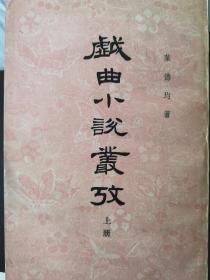 葉德均著
戲曲小說叢考
上冊